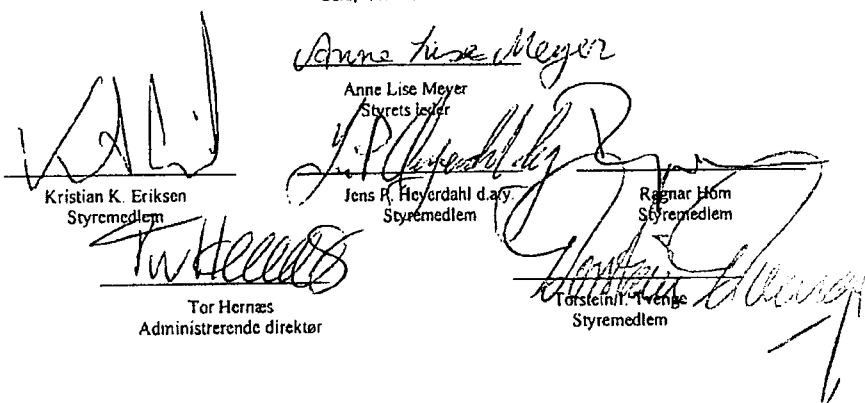 Anne Lise Meyer
Anne Lise Meyer
Styrets leder
Kristian K. Eriksen
Styremedlem
Jens P. Heyerdahl d.a.y.
Jens P. Heyerdahl d.a.y.
Styremedlem
Ragnar Horn
Styremedlem
Tor Hernæs
Tor Hernæs
Administrerende direktør
Torstein I. Tvenge
Torstein Tvenge
Styremedlem